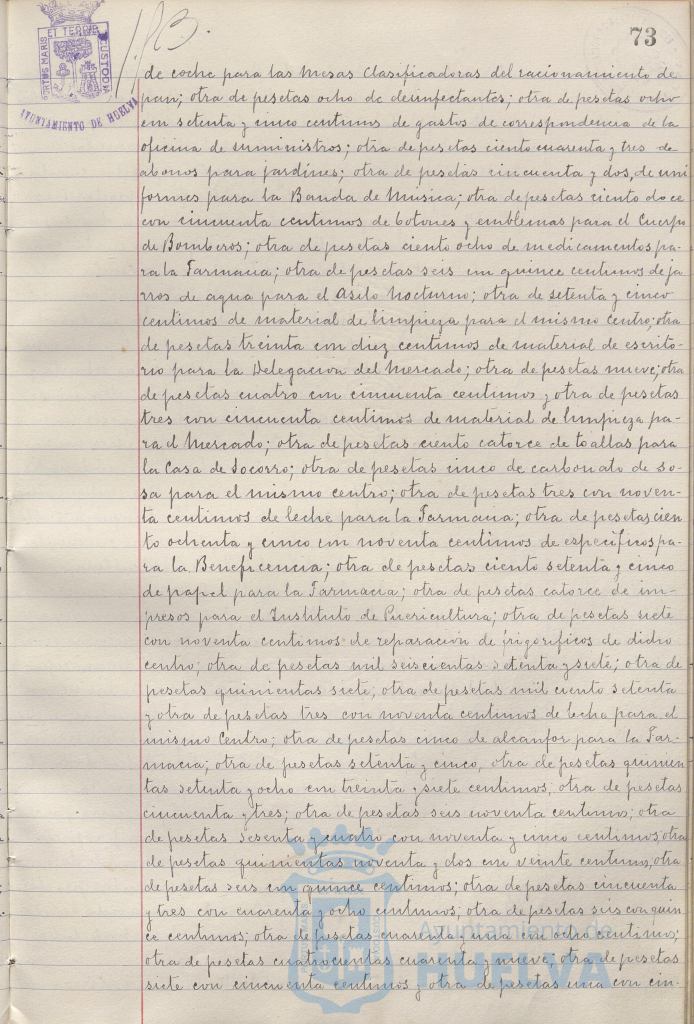 PORTUS MARIS ET TERRÆ CUSTODIA
AYUNTAMIENTO DE HUELVA
73
de coche para las Mesas Clasificadoras del racionamiento de
pan; otra de pesetas ocho de desinfectantes; otra de pesetas ocho
con setenta y cinco centimos de gastos de correspondencia de la
oficina de suministros; otra de pesetas ciento cuarenta y tres de
abonos para jardines; otra de pesetas cincuenta y dos, de uni
formes para la Banda de Música; otra de pesetas ciento doce
con cincuenta centimos de botones y emblemas para el Cuerpo
de Bomberos; otra de pesetas ciento ocho de medicamentos pa-
ra la Farmacia; otra de pesetas seis con quince centimos de ja
rros de agua para el Asilo Nocturno; otra de setenta y cinco
centimos de material de limpieza para el mismo Centro; otra
de pesetas treinta con diez centimos de material de escrito-
rio para la Delegación del Mercado; otra de pesetas nueve; otra
de pesetas cuatro con cincuenta centimos y otra de pesetas
tres con cincuenta centimos de material de limpieza pa-
ra el Mercado; otra de pesetas ciento catorce de toallas para
la Casa de Socorro; otra de pesetas cinco de carbonato de so-
sa para el mismo centro; otra de pesetas tres con noven-
ta centimos de leche para la Farmacia; otra de pesetas cien
to ochenta y cinco con noventa centimos de específicos pa-
ra la Beneficencia; otra de pesetas ciento setenta y cinco
de papel para la Farmacia; otra de pesetas catorce de im-
presos para el Instituto de Puericultura; otra de pesetas siete
con noventa centimos de reparación de frigorificos de dicho
centro; otra de pesetas mil seiscientas setenta y siete; otra de
pesetas quinientas siete; otra de pesetas mil ciento setenta
y otra de pesetas tres con noventa centimos de leche para el
mismo Centro; otra de pesetas cinco de alcanfor para la Far-
macia; otra de pesetas setenta y cinco, otra de pesetas quinien
tas setenta y ocho con treinta y siete centimos, otra de pesetas
cincuenta y tres; otra de pesetas seis noventa centimos; otra
de pesetas sesenta y cuatro con noventa y cinco centimos; otra
de pesetas quinientas noventa y dos con veinte centimos, otra
de pesetas seis con quince centimos; otra de pesetas cincuenta
y tres con cuarenta y ocho centimos; otra de pesetas seis con quin
ce centimos; otra de pesetas cuarenta y una con ocho centimos;
otra de pesetas cuatrocientas cuarenta y nueve; otra de pesetas
siete con cincuenta centimos y otra de pesetas una con cin-
Ayuntamiento de
HUELVA